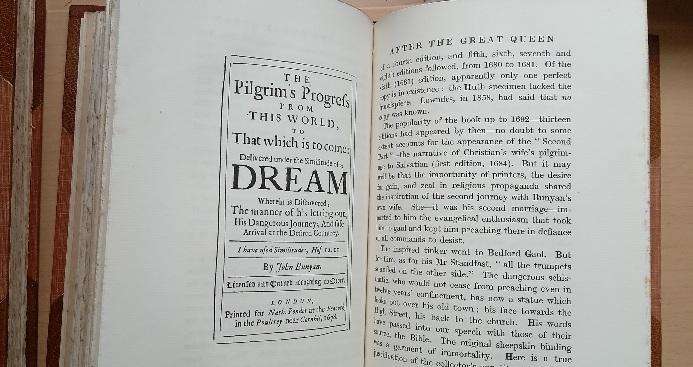 THE
Pilgrim's Progreſs
FROM
THIS WORLD,
TO
That which is to come:
Delivered under the Similitude of a
DREAM
Wherein is Discovered,
The manner of his setting out,
His Dangerous Journey, And safe
Arrival at the Desired Countrey.
I have used Similitudes, Hos. 12. 10.
By John Bunyan.
Licensed and Entred according to Order.
LONDON,
Printed for Nath. Ponder at the Peacock
in the Poultrey near Cornhil, 1678.
AFTER THE GREAT QUEEN
edition, and fifth, sixth, seventh and
editions followed, from 1680 to 1681. Of the
(1681) edition, apparently only one perfect
in existence: the Huth specimen lacked the
Lowndes, in 1858, had said that no
was known.
The popularity of the book up to 1692—thirteen
had appeared by then—no doubt to some
accounts for the appearance of the "Second
"—the narrative of Christian's wife's pilgrim-
to Salvation (first edition, 1684). But it may
be that the importunity of printers, the desire
gain, and zeal in religious propaganda shared
inspiration of the second journey with Bunyan's
wife. She—it was his second marriage—im-
to him the evangelical enthusiasm that took
and kept him preaching there in defiance
commands to desist.
inspired tinker went to Bedford Gaol. But
him, as for his Mr Standfast, "all the trumpets
on the other side." The dangerous schis-
who would not cease from preaching even in
twelve years' confinement, has now a statue which
out over his old town; his face towards the
his back to the church. His words
passed into our speech with those of their
the Bible. The original sheepskin binding
a garment of immortality. Here is a true
of the collector's